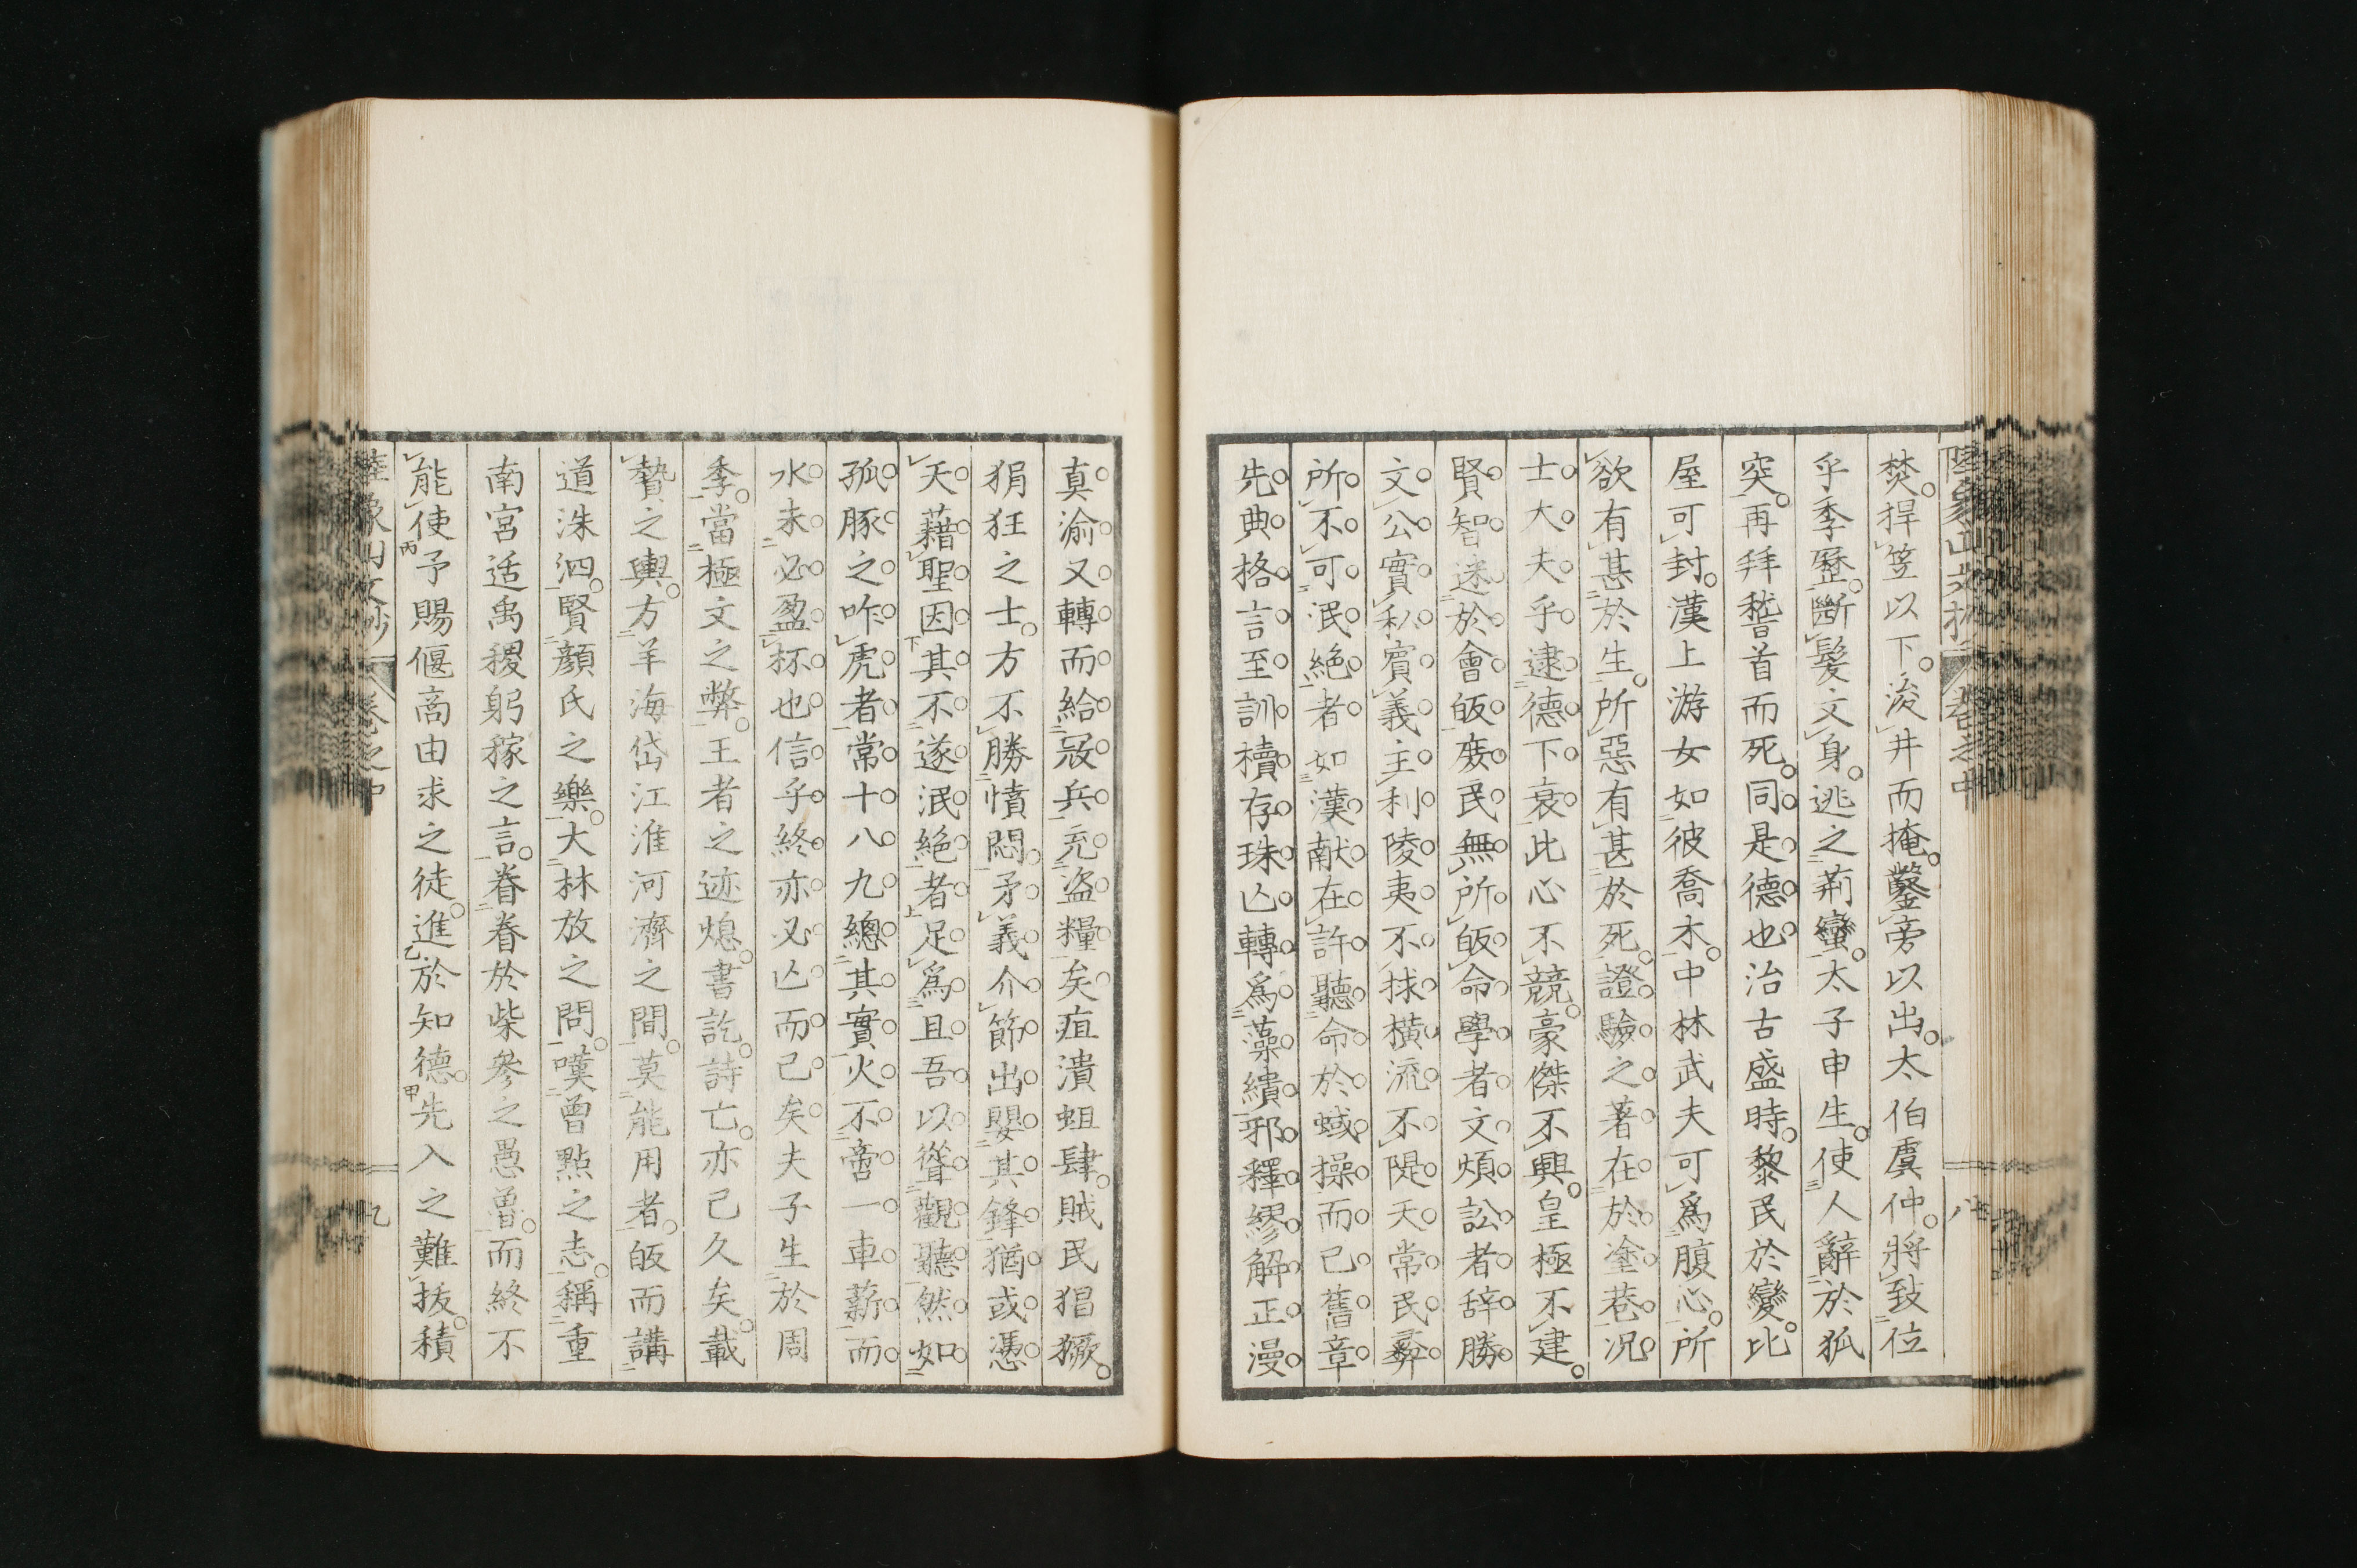 焚捍笠以下浚井而掩鑿旁以出太伯虞仲將致位
乎季歷斷髮文身逃之荊蠻太子申生使人辭於狐
突再拜嵇首而死同是德也治古盛時黎民於變比
屋可封漢上游女如彼喬木中林武夫可爲腹心所
欲有甚於生所惡有甚於死證驗之著在於塗巷况
士大夫乎逮德下衰此心不競豪傑不興皇極不建
賢智迷於會皈庶民無所皈命學者文煩訟者辞勝
文公實私賓義主利陵夷不捄橫流不隄天常民彝
所不可泯絶者如漢献在許聽命於蜮操而已舊章
先典格言至訓櫝存珠亾轉爲藻繢邪釋繆解正漫
真渝又轉而給㓂兵充盗糧矣疽潰蛆肆賊民猖獗
狷狂之士方不勝憤悶矛義介節出嬰其鋒猶或憑
天藉聖因其不遂泯絶者足爲且吾以聳觀聽然如
孤豚之咋虎者常十八九總其實火不啻一車薪而
水未必盈杯也信乎終亦必亾而已矣夫子生於周
季當極文之弊王者之迹熄書訖詩亡亦已久矣載
贄之輿方羊海岱江淮河濟之間莫能用者皈而講
道洙泗賢顔氏之樂大林放之問嘆曾點之志稱重
南宮适禹稷躬稼之言眷眷於柴參之愚魯而終不
能使予賜偃商由求之徒進於知德先入之難抜積